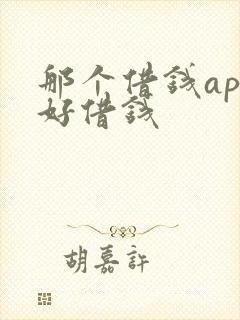 那个借钱ap
好借钱
胡嘉許